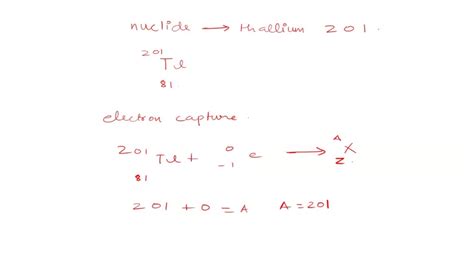 nuclide → thallium 201.
²⁰¹₈₁Tl
electron capture.
²⁰¹₈₁Tl + ⁰₋₁e → ᴬ_Z X
201 + 0 = A   A = 201